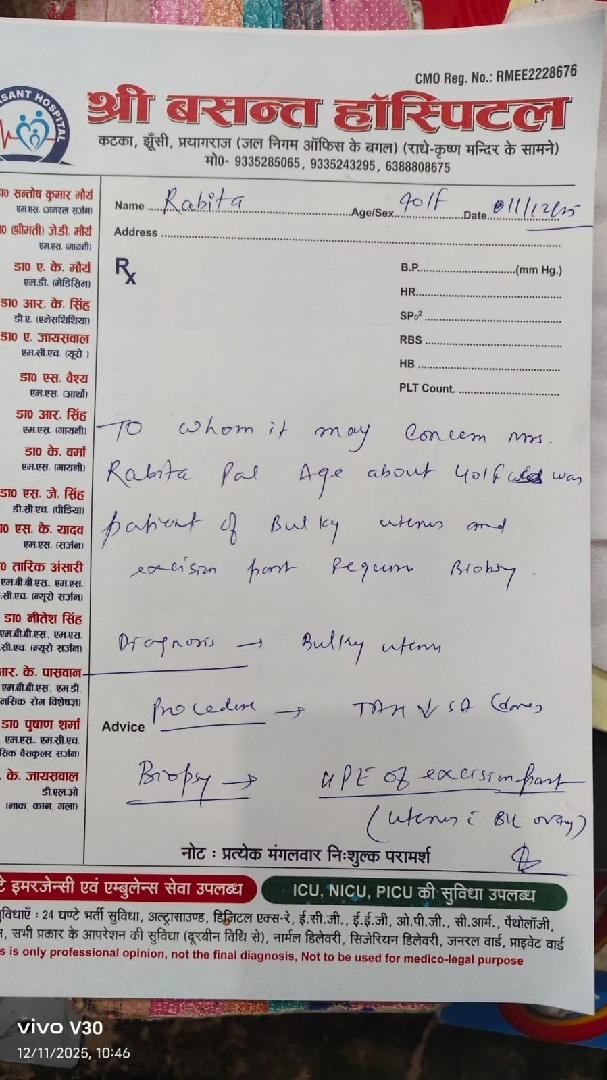 CMO Reg. No.: RMEE2228676
SANT HOSPITAL
श्री बसन्त हॉस्पिटल
कटका, झूँसी, प्रयागराज (जल निगम ऑफिस के बगल) (राधे-कृष्ण मन्दिर के सामने)
मो0- 9335285065, 9335243295, 6388808675
Name Rabita Age/Sex 40/F Date 11/12/25
Address
Rx
B.P. (mm Hg.)
HR
SPo2
RBS
HB
PLT Count.
डा0 सन्तोष कुमार मौर्य
एम.एस. (जनरल सर्जन)
डा0 (श्रीमती) जे.डी. मौर्य
एम.एस. (गायनी)
डा0 ए. के. मौर्य
एम.डी. (मेडिसिन)
डा0 आर. के. सिंह
डी.ए. (एनेसथिशिया)
डा0 ए. जायसवाल
एम.सी.एच. (यूरो)
डा0 एस. वैश्य
एम.एस. (आर्थो)
डा0 आर. सिंह
एम.एस. (गायनी)
डा0 के. वर्मा
एम.एस. (गायनी)
डा0 एस. जे. सिंह
डी.सी.एच. (पीडिया)
डा0 एस. के. यादव
एम.एस. (सर्जन)
तारिक अंसारी
एम.बी.बी.एस., एम.एस.
सी.एच. (न्यूरो सर्जन)
डा0 नीतेश सिंह
एम.बी.बी.एस., एम.एस.
सी.एच. (न्यूरो सर्जन)
आर. के. पासवान
एम.बी.बी.एस., एम.डी.
नसिक रोग विशेषज्ञ)
डा0 पुषाण शर्मा
एम.एस., एम.सी.एच.
सिक वैसकुलर सर्जन)
के. जायसवाल
डी.एल.ओ
(नाक, कान, गला)
To whom it may Concern Mrs.
Rabita Pal Age about 40/F was
patient of Bulky uterus and
excision part Requm Biopsy.
Diagnosis → Bulky uterus
Advice
Procedure → TAH ↓ SA (done)
Biopsy → HPE of excision part
(uterus c BIL ovary)
नोट : प्रत्येक मंगलवार निःशुल्क परामर्श
टे इमरजेन्सी एवं एम्बुलेन्स सेवा उपलब्ध
ICU, NICU, PICU की सुविधा उपलब्ध
सुविधाएँ : 24 घण्टे भर्ती सुविधा, अल्ट्रासाउण्ड, डिजिटल एक्स-रे, ई.सी.जी., ई.ई.जी., ओ.पी.जी., सी.आर्म., पैथोलॉजी,
सभी प्रकार के आपरेशन की सुविधा (दूरबीन विधि से), नार्मल डिलेवरी, सिजेरियन डिलेवरी, जनरल वार्ड, प्राइवेट वार्ड
is only professional opinion, not the final diagnosis, Not to be used for medico-legal purpose
vivo V30
12/11/2025, 10:46